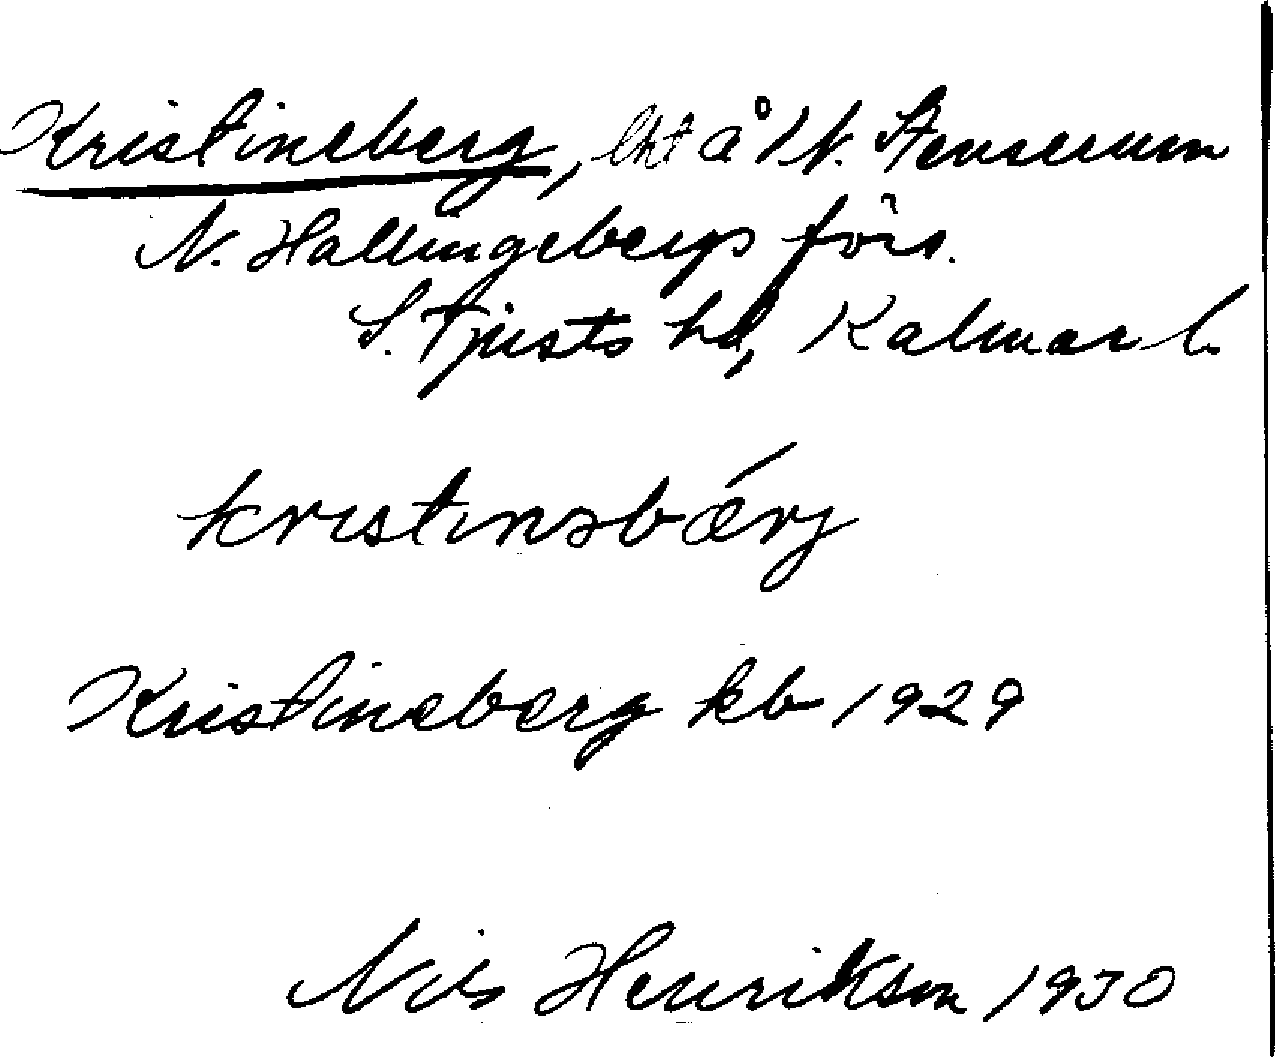 Kristineberg, lht å N. Stenserum
N. Hallingebergs förs.
S. Tjusts hd, Kalmar l.
kristinəbærj
Kristineberg kb 1929
Nils Henrikson 1930